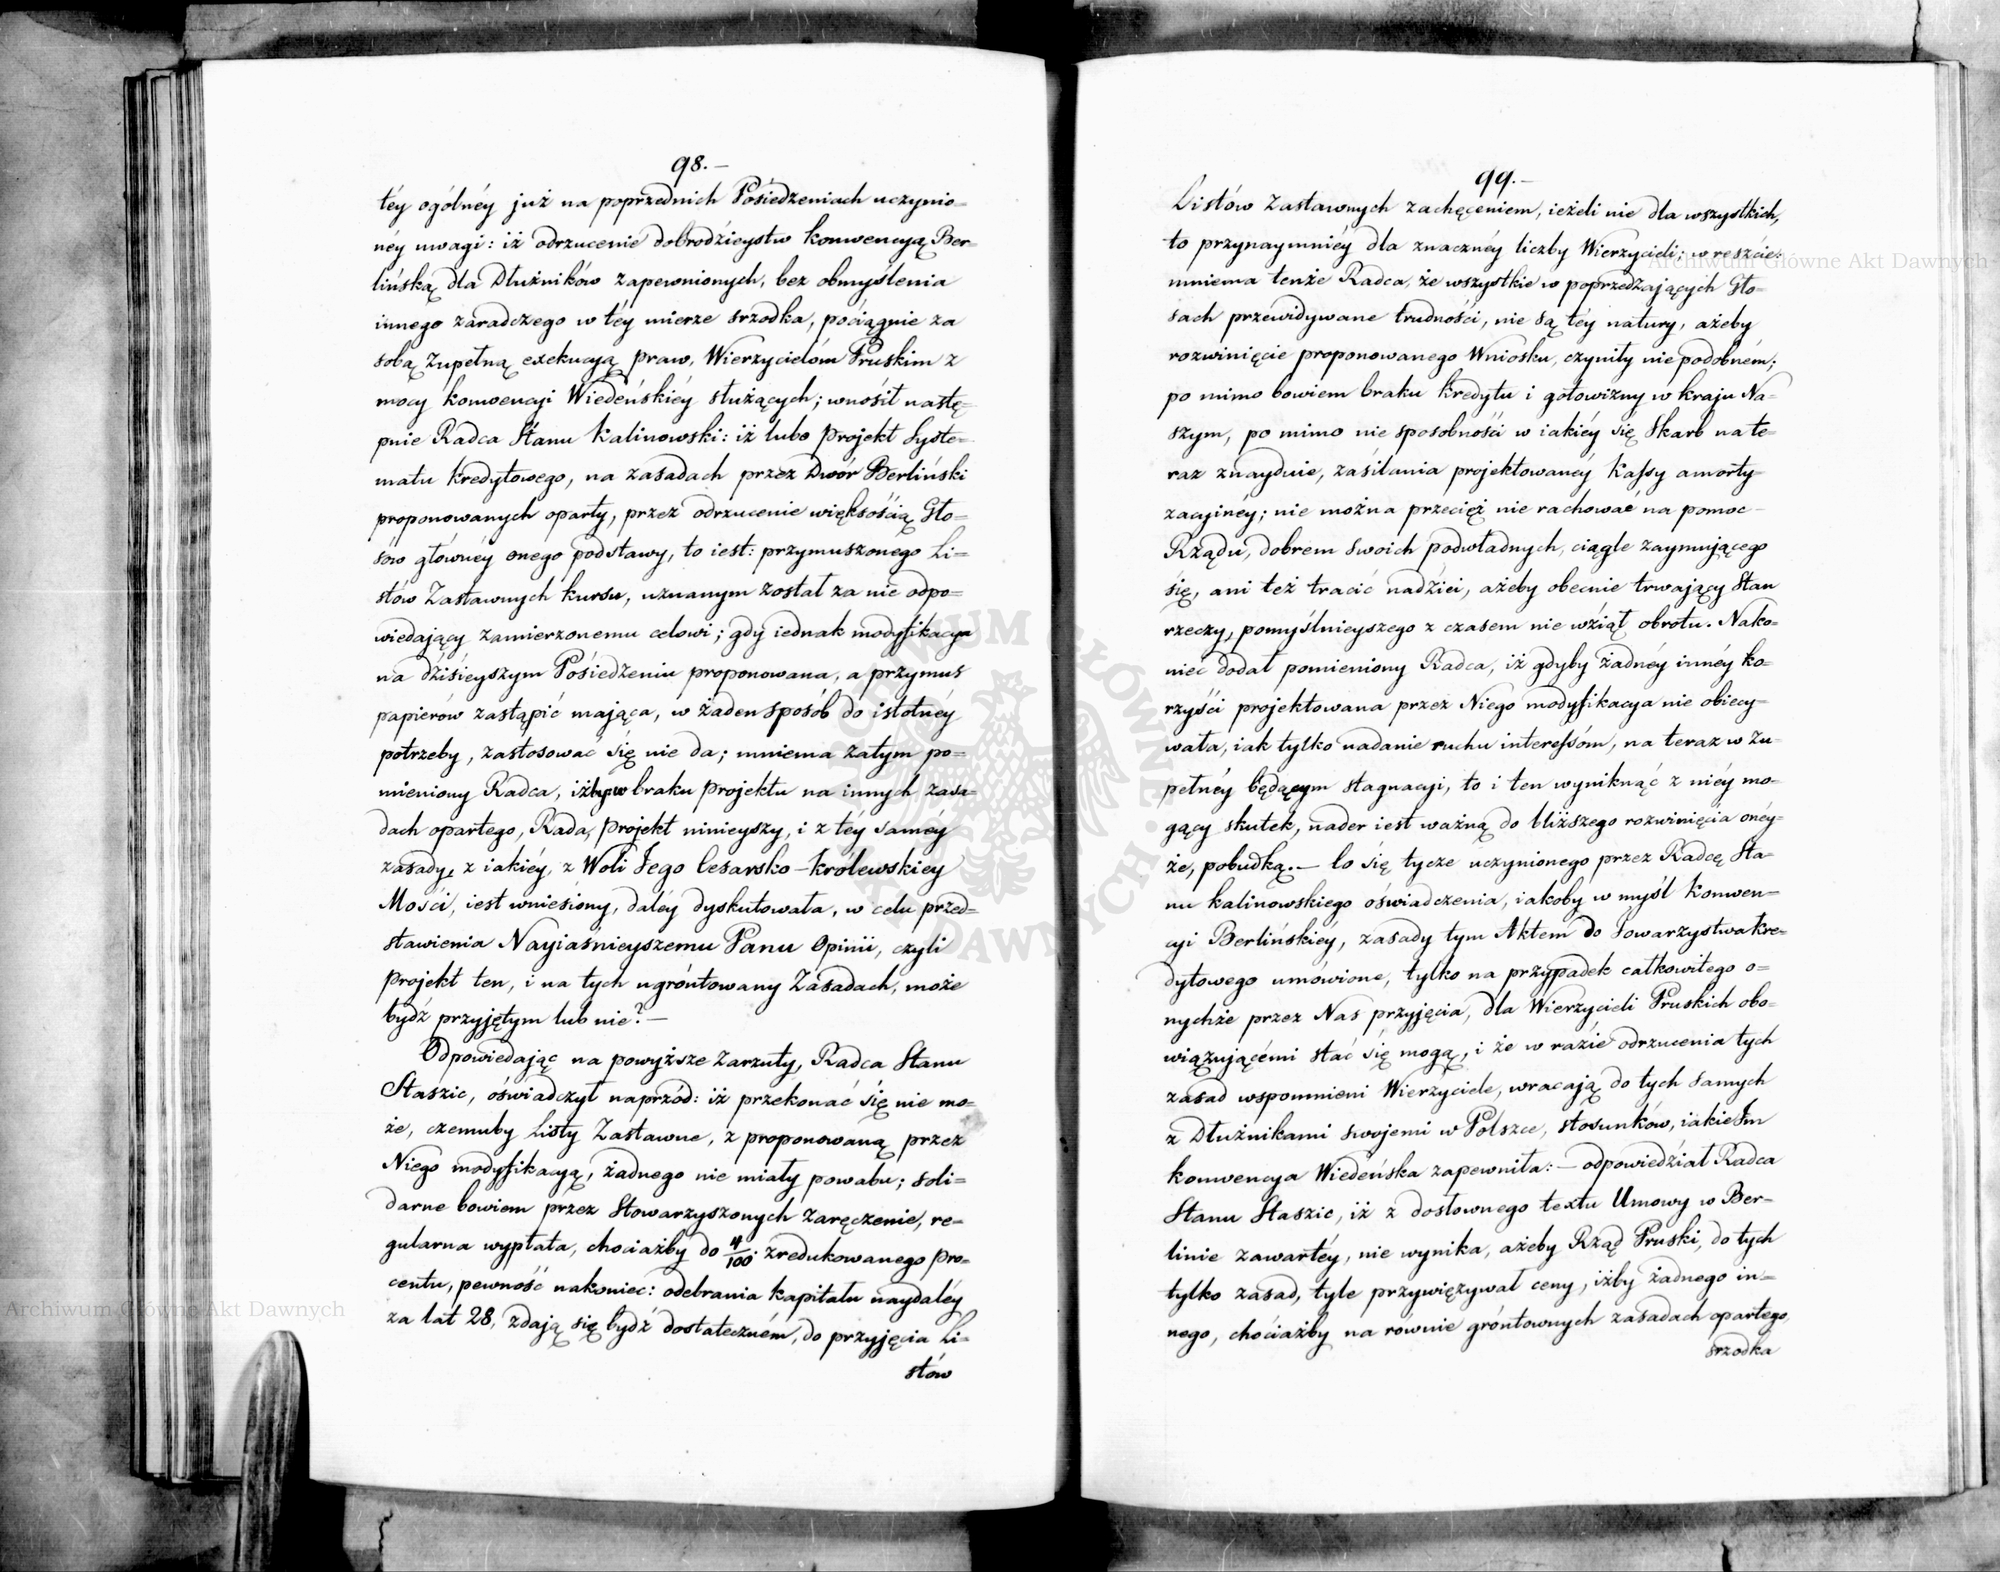 98.–
téy ogólnéy już na poprzednich Posiedzeniach uczynio=
néy uwagi: iż odrzucenie dobrodzieystw konwencyą Ber=
lińską dla Dłużników zapewnionych, bez obmyślenia
innego zaradczego w téy mierze srzodka, pociągnie za
sobą zupełną exekucyą praw, Wierzycielóm Pruskim z
mocy konwencyi Wiedeńskiéy służących; wnosił nastę=
pnie Radca Stanu Kalinowski: iż lubo Projekt Syste=
matu kredytowego, na zasadach przez Dwór Berliński
proponowanych oparty, przez odrzucenie większością Gło=
sów głównéy onego podstawy, to iest: przymuszonego Li=
stów Zastawnych kursu, uznanym został za nie odpo=
wiedający zamierzonemu celowi; gdy iednak modyfikacya
na dzisieyszym Posiedzeniu proponowana, a przymus
papierów zastąpić mająca, w żaden sposób do istotnéy
potrzeby, zastosować się nie da; mniema zatym po=
mieniony Radca, iżby w braku projektu na innych zasa=
dach opartego, Rada, Projekt ninieyszy, i z téy saméy
zasady, z iakiéy, z Woli Jego Cesarsko-Królewskiey
Mości, iest wniesiony, daléy dyskutowała, w celu przed=
stawienia Nayiaśnieyszemu Panu Opinii, czyli
Projekt ten, i na tych ugróntowany Zasadach, może
bydź przyjętym lub nie? –
Odpowiedając na powyższe zarzuty, Radca Stanu
Staszic, oświadczył naprzód: iż przekonać się nie mo=
że, czemuby Listy Zastawne, z proponowaną przez
Niego modyfikacyą, żadnego nie miały powabu; soli=
darne bowiem przez Stowarzyszonych zaręczenie, re=
gularna wypłata, chociażby do 4/100 zredukowanego pro=
centu, pewność nakoniec: odebrania kapitału naydaléy
za lat 28, zdają się bydź dostateczném, do przyjęcia Li=
stów
99.–
Listów Zastawnych zachęceniem, ieżeli nie dla wszystkich,
to przynaymniéy dla znacznéy liczby Wierzycieli; w reszcie:
mniema tenże Radca, że wszystkie w poprzedzających Gło=
sach przewidywane trudności, nie są téy natury, ażeby
rozwinięcie proponowanego Wniosku, czyniły nie podobném;
po mimo bowiem braku kredytu i gotowizny w kraju Na=
szym, po mimo nie sposobności w iakiéy się Skarb na te=
raz znayduie, zasilania projektowanéy Kassy amorty=
zacyinéy; nie można przecięż nie rachować na pomoc
Rządu, dobrem swoich podwładnych, ciągle zaymującego
się, ani też tracić nadziei, ażeby obecnie trwający Stan
rzeczy, pomyślnieyszego z czasem nie wziął obrotu. Nako=
niec dodał pomieniony Radca, iż gdyby żadnéy innéy ko=
rzyści projektowana przez Niego modyfikacya nie obiecy=
wała, iak tylko nadanie ruchu interessóm, na teraz w zu=
pełnéy będącym stagnacyi, to i ten wyniknąć z niéy mo=
gący skutek, nader iest ważną do bliższego rozwinięcia onéy=
że, pobudką. – Co się tycze uczynionego przez Radcę Sta=
nu Kalinowskiego oświadczenia, iakoby w myśl Konwen=
cyi Berlińskiéy, zasady tym Aktem do Towarzystwa kre=
dytowego umówione, tylko na przypadek całkowitego o=
nychże przez Nas przyjęcia, dla Wierzycieli Pruskich obo=
wiązującémi stać się mogą, i że w razie odrzucenia tych
zasad wspomnieni Wierzyciele, wracają do tych samych
z Dłużnikami swojemi w Polszce, stosunków, iakie Im
konwencya Wiedeńska zapewniła: – odpowiedział Radca
Stanu Staszic, iż z dosłownego textu Umowy w Ber=
linie zawartéy, nie wynika, ażeby Rząd Pruski, do tych
tylko zasad, tyle przywięzywał ceny, iżby żadnego in=
nego, chociażby na równie gróntownych zasadach opartego,
srzodka
Archiwum Główne Akt Dawnych
Archiwum Główne Akt Dawnych
ARCHIWUM GŁÓWNE AKT DAWNYCH